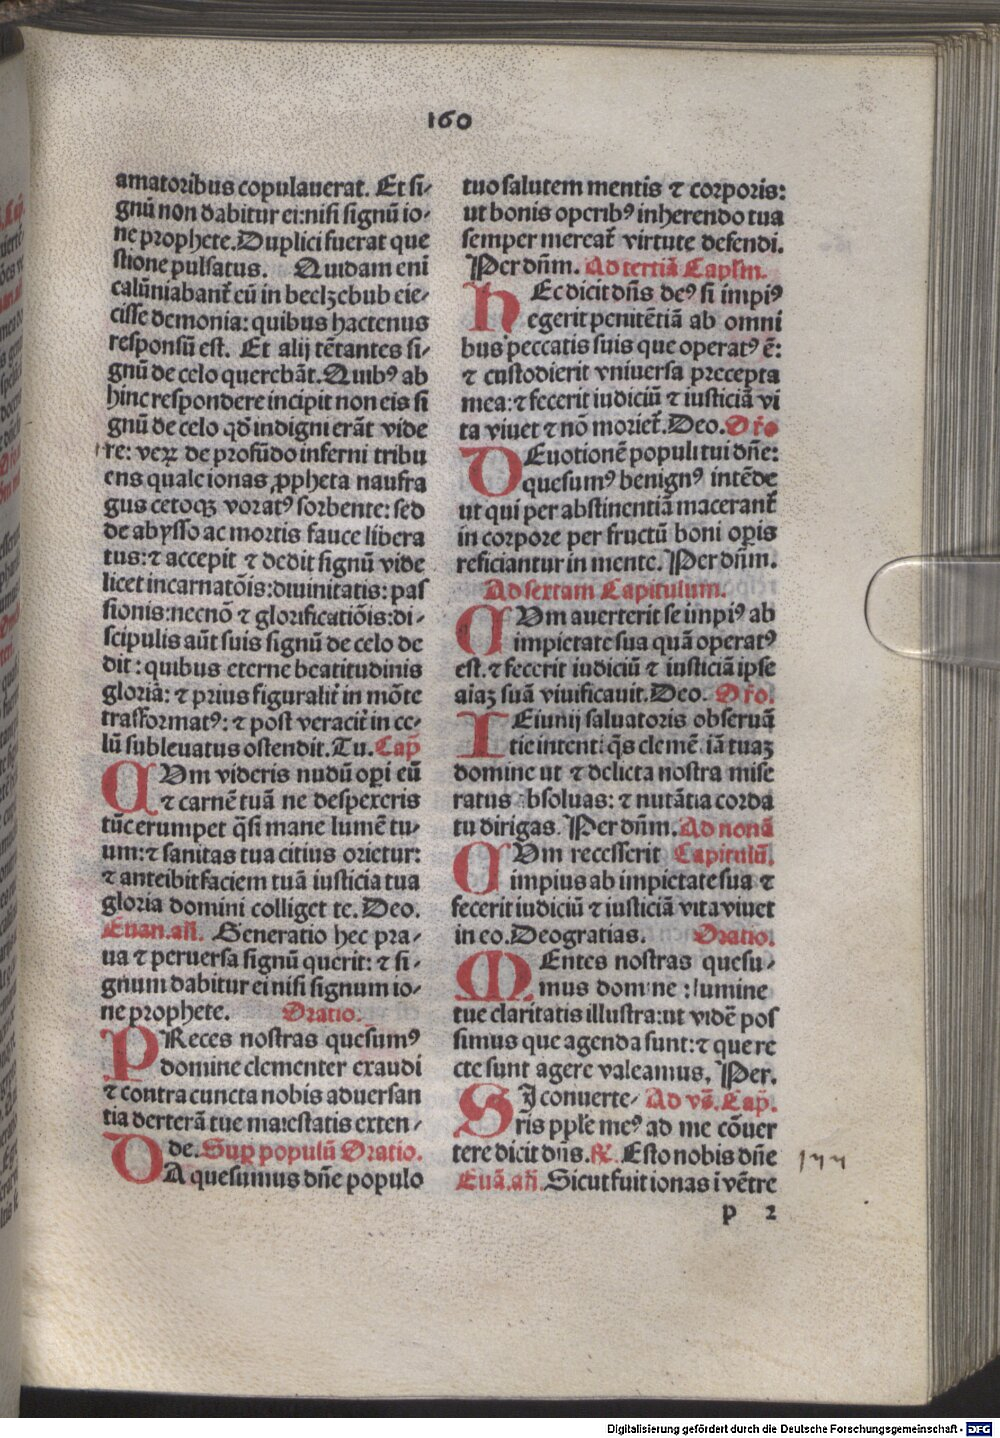 160
amatoribus copulauerat. Et si-
gnū non dabitur ei: nisi signū io-
ne prophete. Duplici fuerat que
stione pulsatus. Quidam eni
calūniabanť eū in beelzebub eie-
cisse demonia: quibus hactenus
responsū est. Et alij tētantes si-
gnū de celo querebāt. Quibꝰ ab
hinc respondere incipit non eis si
gnū de celo qđ indigni erāt vide
re: veꝝ de profūdo inferni tribu
ens quale ionas ꝓpheta naufra
gus cetoqꝫ voratꝰ sorbente: sed
de abysso ac mortis fauce libera
tus: ⁊ accepit ⁊ dedit signū vide
licet incarnatōis: diuinitatis: pas
sionis: necnō ⁊ glorificatiōis: di-
scipulis aūt suis signū de celo de
dit: quibus eterne beatitudinis
gloriā: ⁊ prius figuraliť in mōte
trāsformatꝰ: ⁊ post veraciť in ce-
lū subleuatus ostendit. Tu. Cap̄
CUm videris nudū oꝑi eū
⁊ carnē tuā ne despexeris
tūc erumpet q̄si mane lumē tu-
um: ⁊ sanitas tua citius orietur:
⁊ anteibit faciem tuā iusticia tua
gloria domini colliget te. Deo.
Euan. añ. Generatio hec pra-
ua ⁊ peruersa signū querit: ⁊ si-
gnum dabitur ei nisi signum io-
ne prophete. Oratio.
PReces nostras quesumꝰ
domine clementer exaudi
⁊ contra cuncta nobis aduersan
tia dexterā tue maiestatis exten-
de. Suꝑ populū Oratio.
DA quesumus dn̄e populo
tuo salutem mentis ⁊ corporis:
ut bonis operibꝰ inherendo tua
semper mereať virtute defendi.
Per dn̄m. Ad tertiā Capl̄m.
HEc dicit dn̄s deꝰ si impiꝰ
egerit penitētiā ab omni
bus peccatis suis que operatꝰ ē:
⁊ custodierit vniuersa precepta
mea: ⁊ fecerit iudiciū ⁊ iusticiā vi
ta viuet ⁊ nō morieť. Deo. Or̄o
DEuotionē populi tui dn̄e:
quesumꝰ benignꝰ intēde
ut qui per abstinentiā maceranť
in corpore per fructū boni oꝑis
reficiantur in mente. Per dn̄m.
Ad sextam Capitulum.
CUm auerterit se impiꝰ ab
impietate sua quā operatꝰ
est. ⁊ fecerit iudiciū ⁊ iusticiā ipse
aiaꝫ suā viuificauit. Deo. Or̄o.
IEiunij saluatoris obseruā
tie intenti q̄s clemētiā tuaꝫ
domine ut ⁊ delicta nostra mise
ratus absoluas: ⁊ nutātia corda
tu dirigas. Per dn̄m. Ad nonā
CUm recesserit Capitulū.
impius ab impietate sua ⁊
fecerit iudiciū ⁊ iusticiā vita viuet
in eo. Deo gratias. Oratio.
MEntes nostras quesu-
mus domine: lumine
tue claritatis illustra: ut vidē pos
simus que agenda sunt: ⁊ que re
cte sunt agere valeamus. Per.
SI conuerte- Ad vs̄. Cap̄.
ris pple meꝰ ad me cōuer
tere dicit dn̄s. ℟. Esto nobis dn̄e
Euā. añ. Sicut fuit ionas ī vētre
p 2
Digitalisierung gefördert durch die Deutsche Forschungsgemeinschaft - DFG